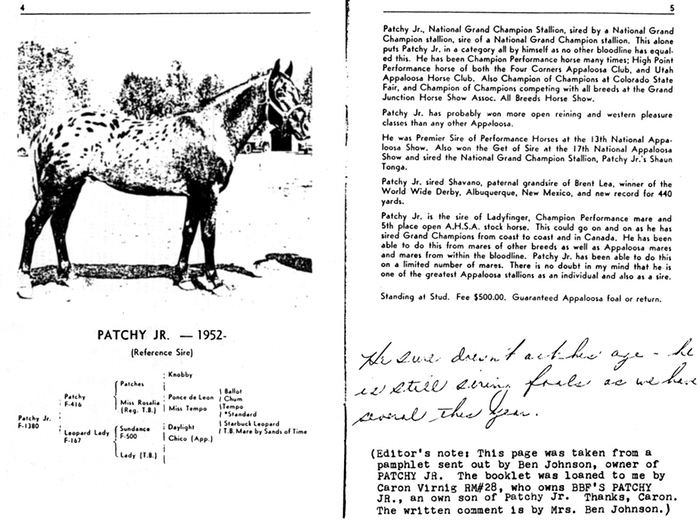 4
PATCHY JR. — 1952-
(Reference Sire)
Knobby
Patches
Patchy
F-416
Ballot
Miss Rosalia
(Reg. T.B.)
Ponce de Leon
Chum
Miss Tempo
Tempo
*Standard
Patchy Jr.
F-1380
Sundance
F-500
Daylight
Starbuck Leopard
Leopard Lady
F-167
Chico (App.)
T.B. Mare by Sands of Time
Lady (T.B.)
5
Patchy Jr., National Grand Champion Stallion, sired by a National Grand
Champion stallion, sire of a National Grand Champion stallion. This alone
puts Patchy Jr. in a category all by himself as no other bloodline has equal-
ed this. He has been Champion Performance horse many times; High Point
Performance horse of both the Four Corners Appaloosa Club, and Utah
Appaloosa Horse Club. Also Champion of Champions at Colorado State
Fair, and Champion of Champions competing with all breeds at the Grand
Junction Horse Show Assoc. All Breeds Horse Show.
Patchy Jr. has probably won more open reining and western pleasure
classes than any other Appaloosa.
He was Premier Sire of Performance Horses at the 13th National Appa-
loosa Show. Also won the Get of Sire at the 17th National Appaloosa
Show and sired the National Grand Champion Stallion, Patchy Jr.'s Shaun
Tonga.
Patchy Jr. sired Shavano, paternal grandsire of Brent Lea, winner of the
World Wide Derby, Albuquerque, New Mexico, and new record for 440
yards.
Patchy Jr. is the sire of Ladyfinger, Champion Performance mare and
5th place open A.H.S.A. stock horse. This could go on and on as he has
sired Grand Champions from coast to coast and in Canada. He has been
able to do this from mares of other breeds as well as Appaloosa mares
and mares from within the bloodline. Patchy Jr. has been able to do this
on a limited number of mares. There is no doubt in my mind that he is
one of the greatest Appaloosa stallions as an individual and also as a sire.
Standing at Stud. Fee $500.00. Guaranteed Appaloosa foal or return.
He sure doesn't act his age - he
is still siring foals as we have
several this year.
(Editor's note: This page was taken from a
pamphlet sent out by Ben Johnson, owner of
PATCHY JR. The booklet was loaned to me by
Caron Virnig RM#28, who owns BBF'S PATCHY
JR., an own son of Patchy Jr. Thanks, Caron.
The written comment is by Mrs. Ben Johnson.)